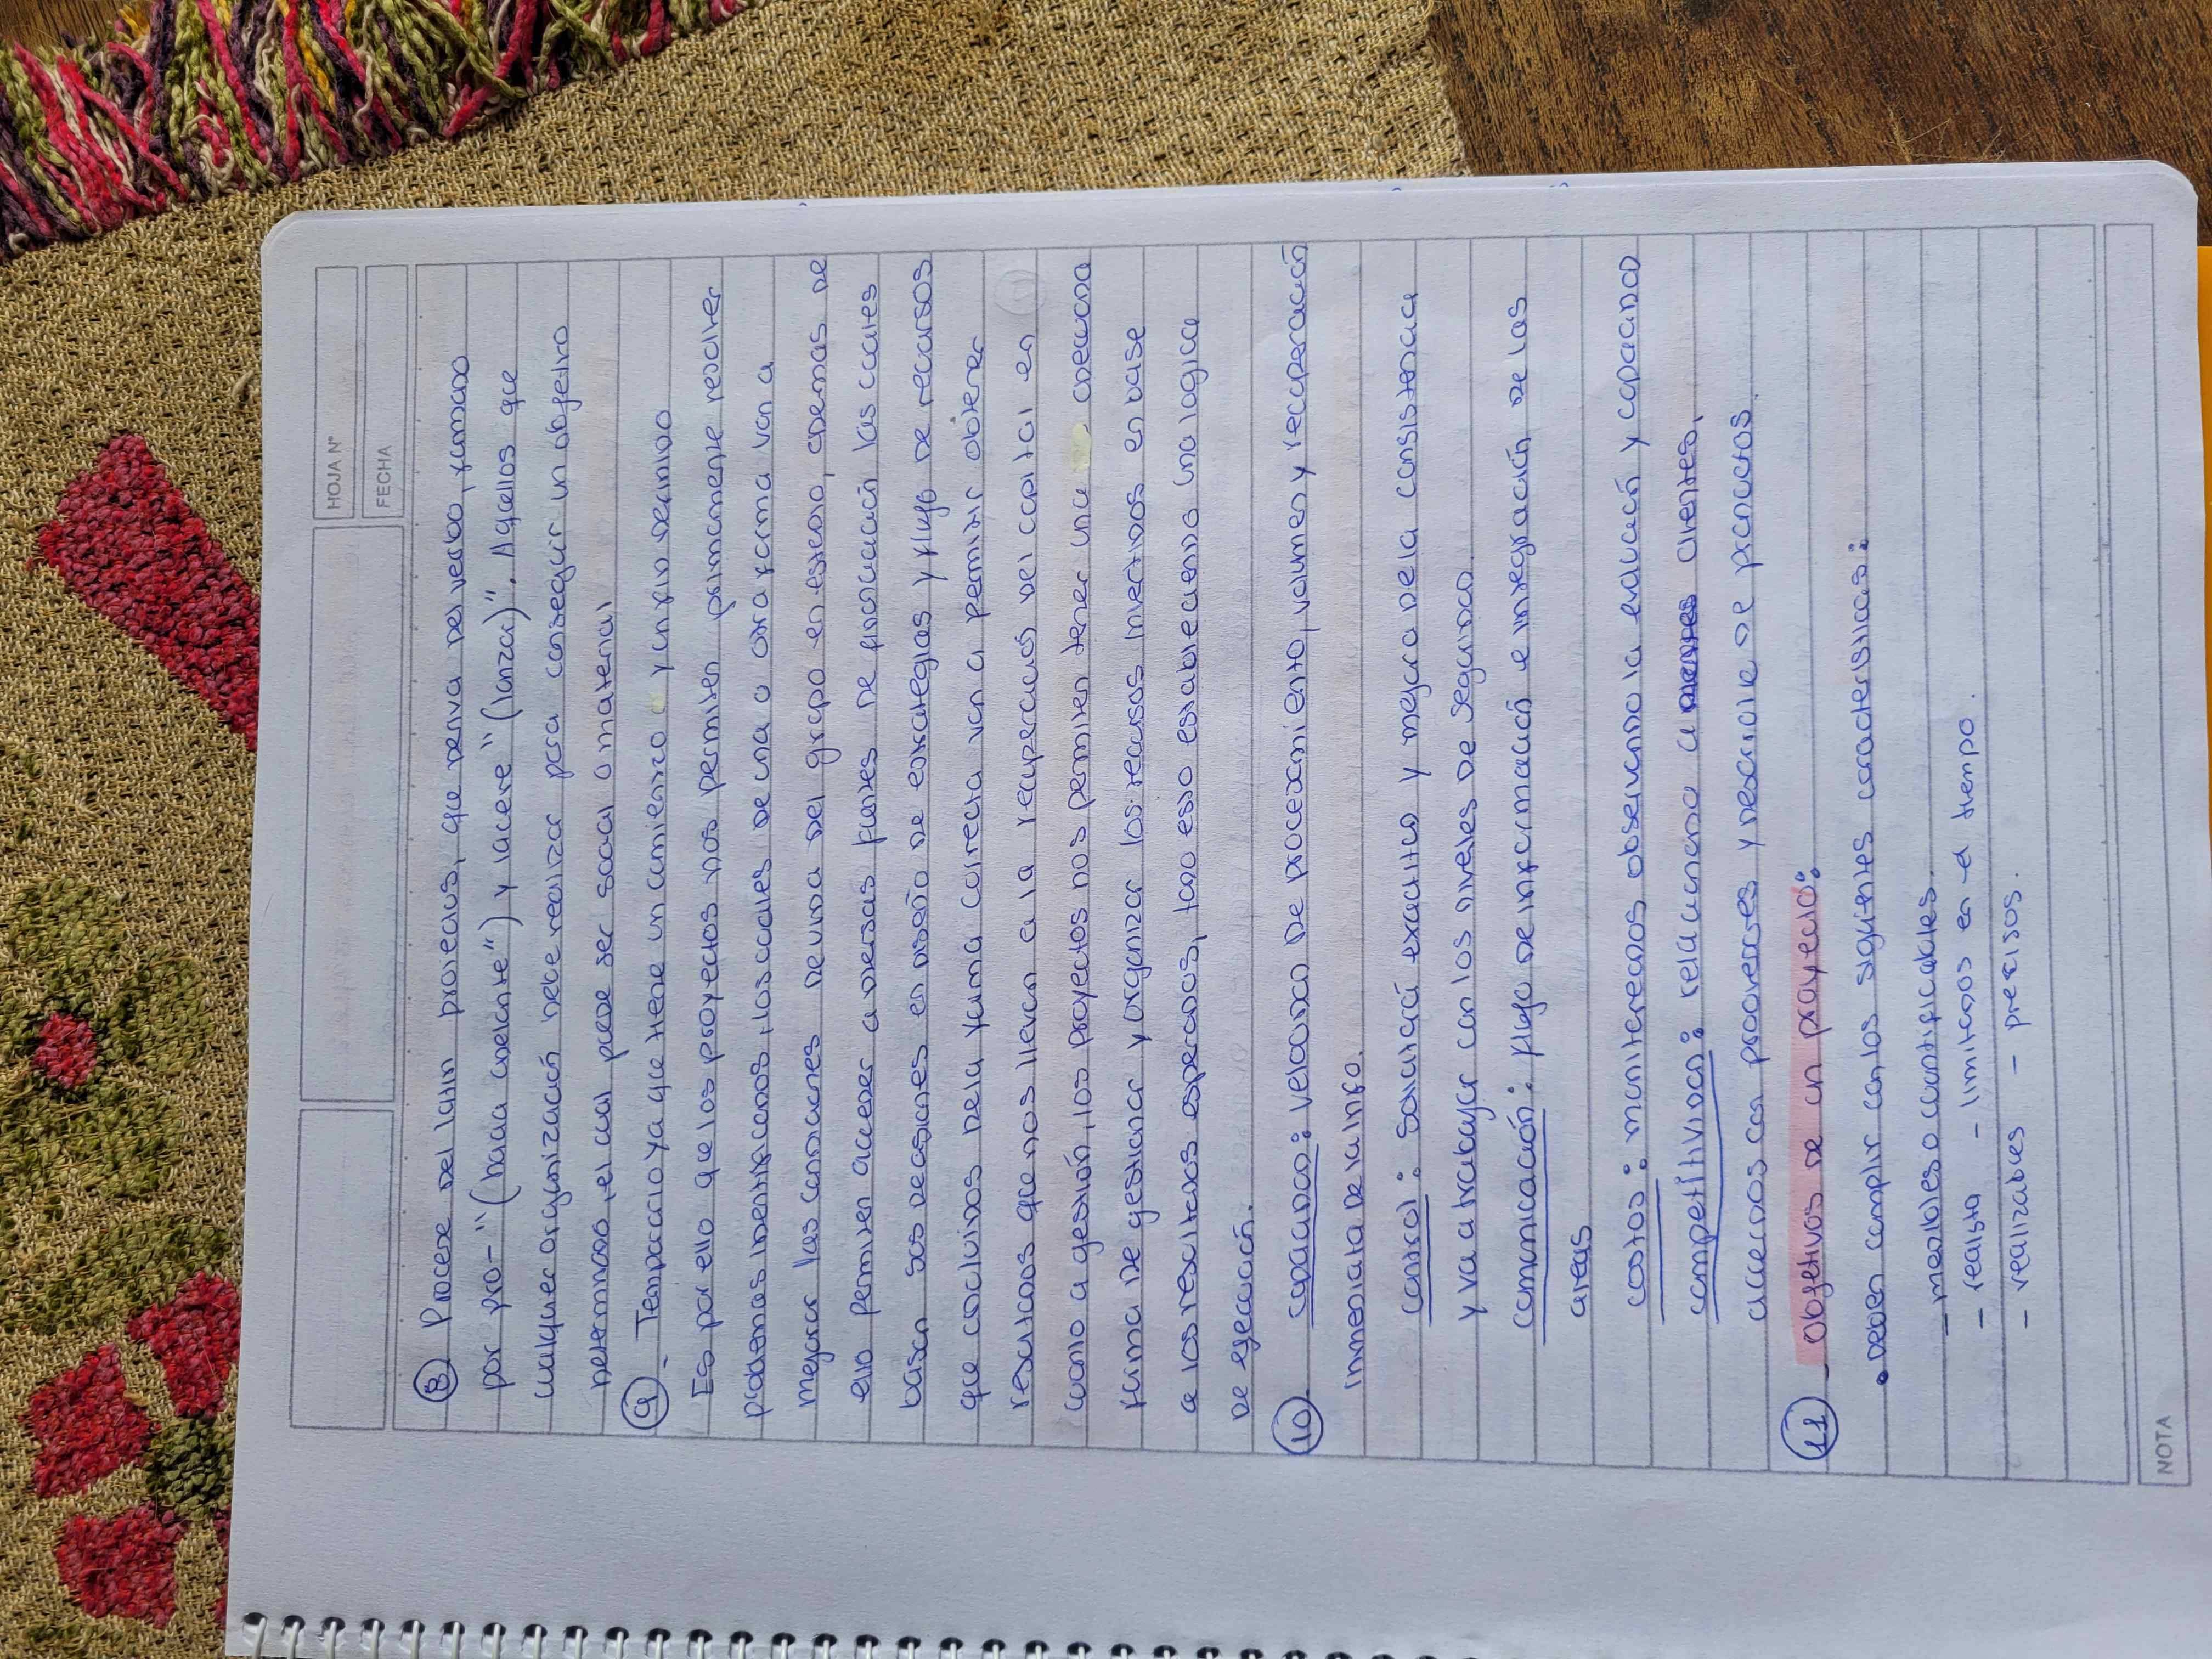 HOJA N°
FECHA
8 Procede del latin proiectus, que deriva del verbo, formado
por pro-" (hacia adelante") y iacere" (lanzar)". Aquellos que
cualquier organización debe realizar para conseguir un objetivo
determinado, el cual puede ser social o material
9 - Temporario ya que tiene un comienzo y un fin definido
Es por ello que los proyectos nos permiten primamente resolver
problemas identificados, los cuales de una o otra forma van a
mejorar las condiciones de vida del grupo en estudio, ademas de
ello permiten acceder a diversas fuentes de financiación las cuales
basan sus decisiones en diseño de estrategias y flujo de recursos
que concluidos de la forma correcta van a permitir obtener
resultados que nos llevan a la recuperación del capital en
cuanto a gestión, los proyectos nos permiten tener una adecuada
forma de gestionar y organizar los recursos invertidos en base
a los resultados esperados, todo esto estableciendo una logica
de ejecución.
10 capacidad: velocidad de procesamiento, volumen y recuperación
inmediata de la info.
control: exactitud y mejora de la consistencia
y va a trabajar con los niveles de seguridad.
comunicación: flujo de información e integración de las
areas
costos: monitoreados, observando la evolución y capacidad
competitividad: relacionado a clientes,
acuerdos con proovedores y desarrollo de productos.
11 - Objetivos de un proyecto:
• Deben cumplir con las sigüentes caracteristicas:
- medibles o cuantificables
- realista - limitados en el tiempo.
- realizables - precisos.
NOTA